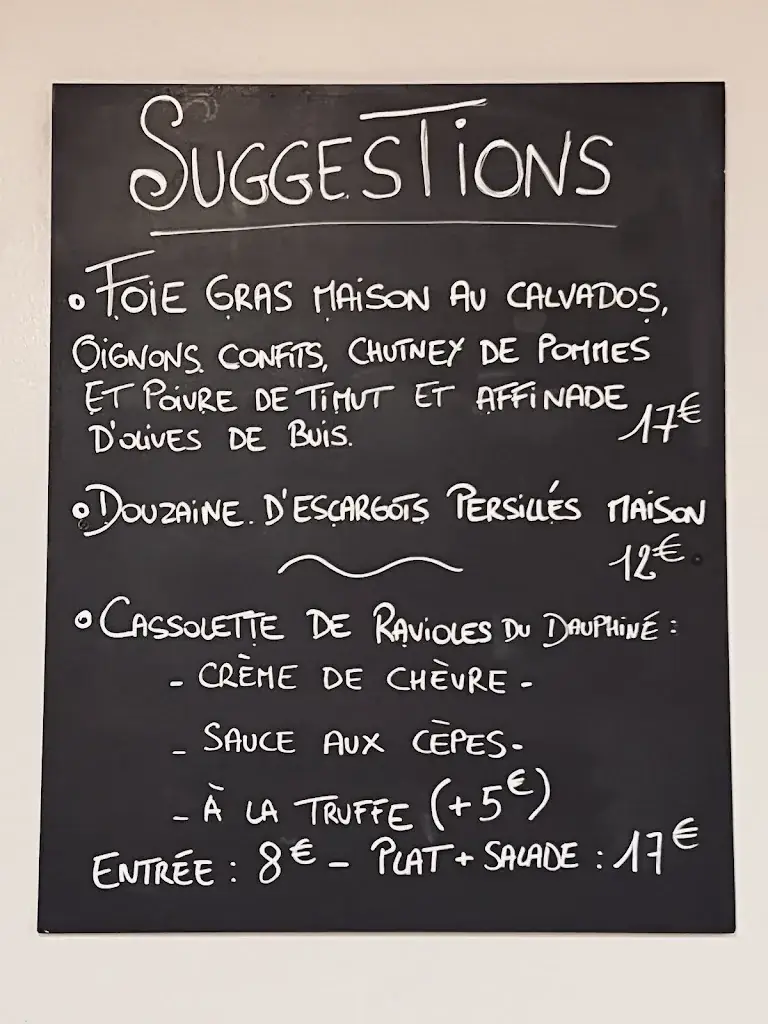 SUGGESTIONS
• FOIE GRAS MAISON AU CALVADOS,
OIGNONS CONFITS, CHUTNEY DE POMMES
ET POIVRE DE TIMUT ET AFFINADE
D'OLIVES DE BUIS. 17€
• DOUZAINE D'ESCARGOTS PERSILLÉS MAISON
12€
• CASSOLETTE DE RAVIOLES DU DAUPHINÉ :
- CRÈME DE CHÈVRE -
- SAUCE AUX CÈPES -
- À LA TRUFFE (+5€)
ENTRÉE : 8€ - PLAT + SALADE : 17€